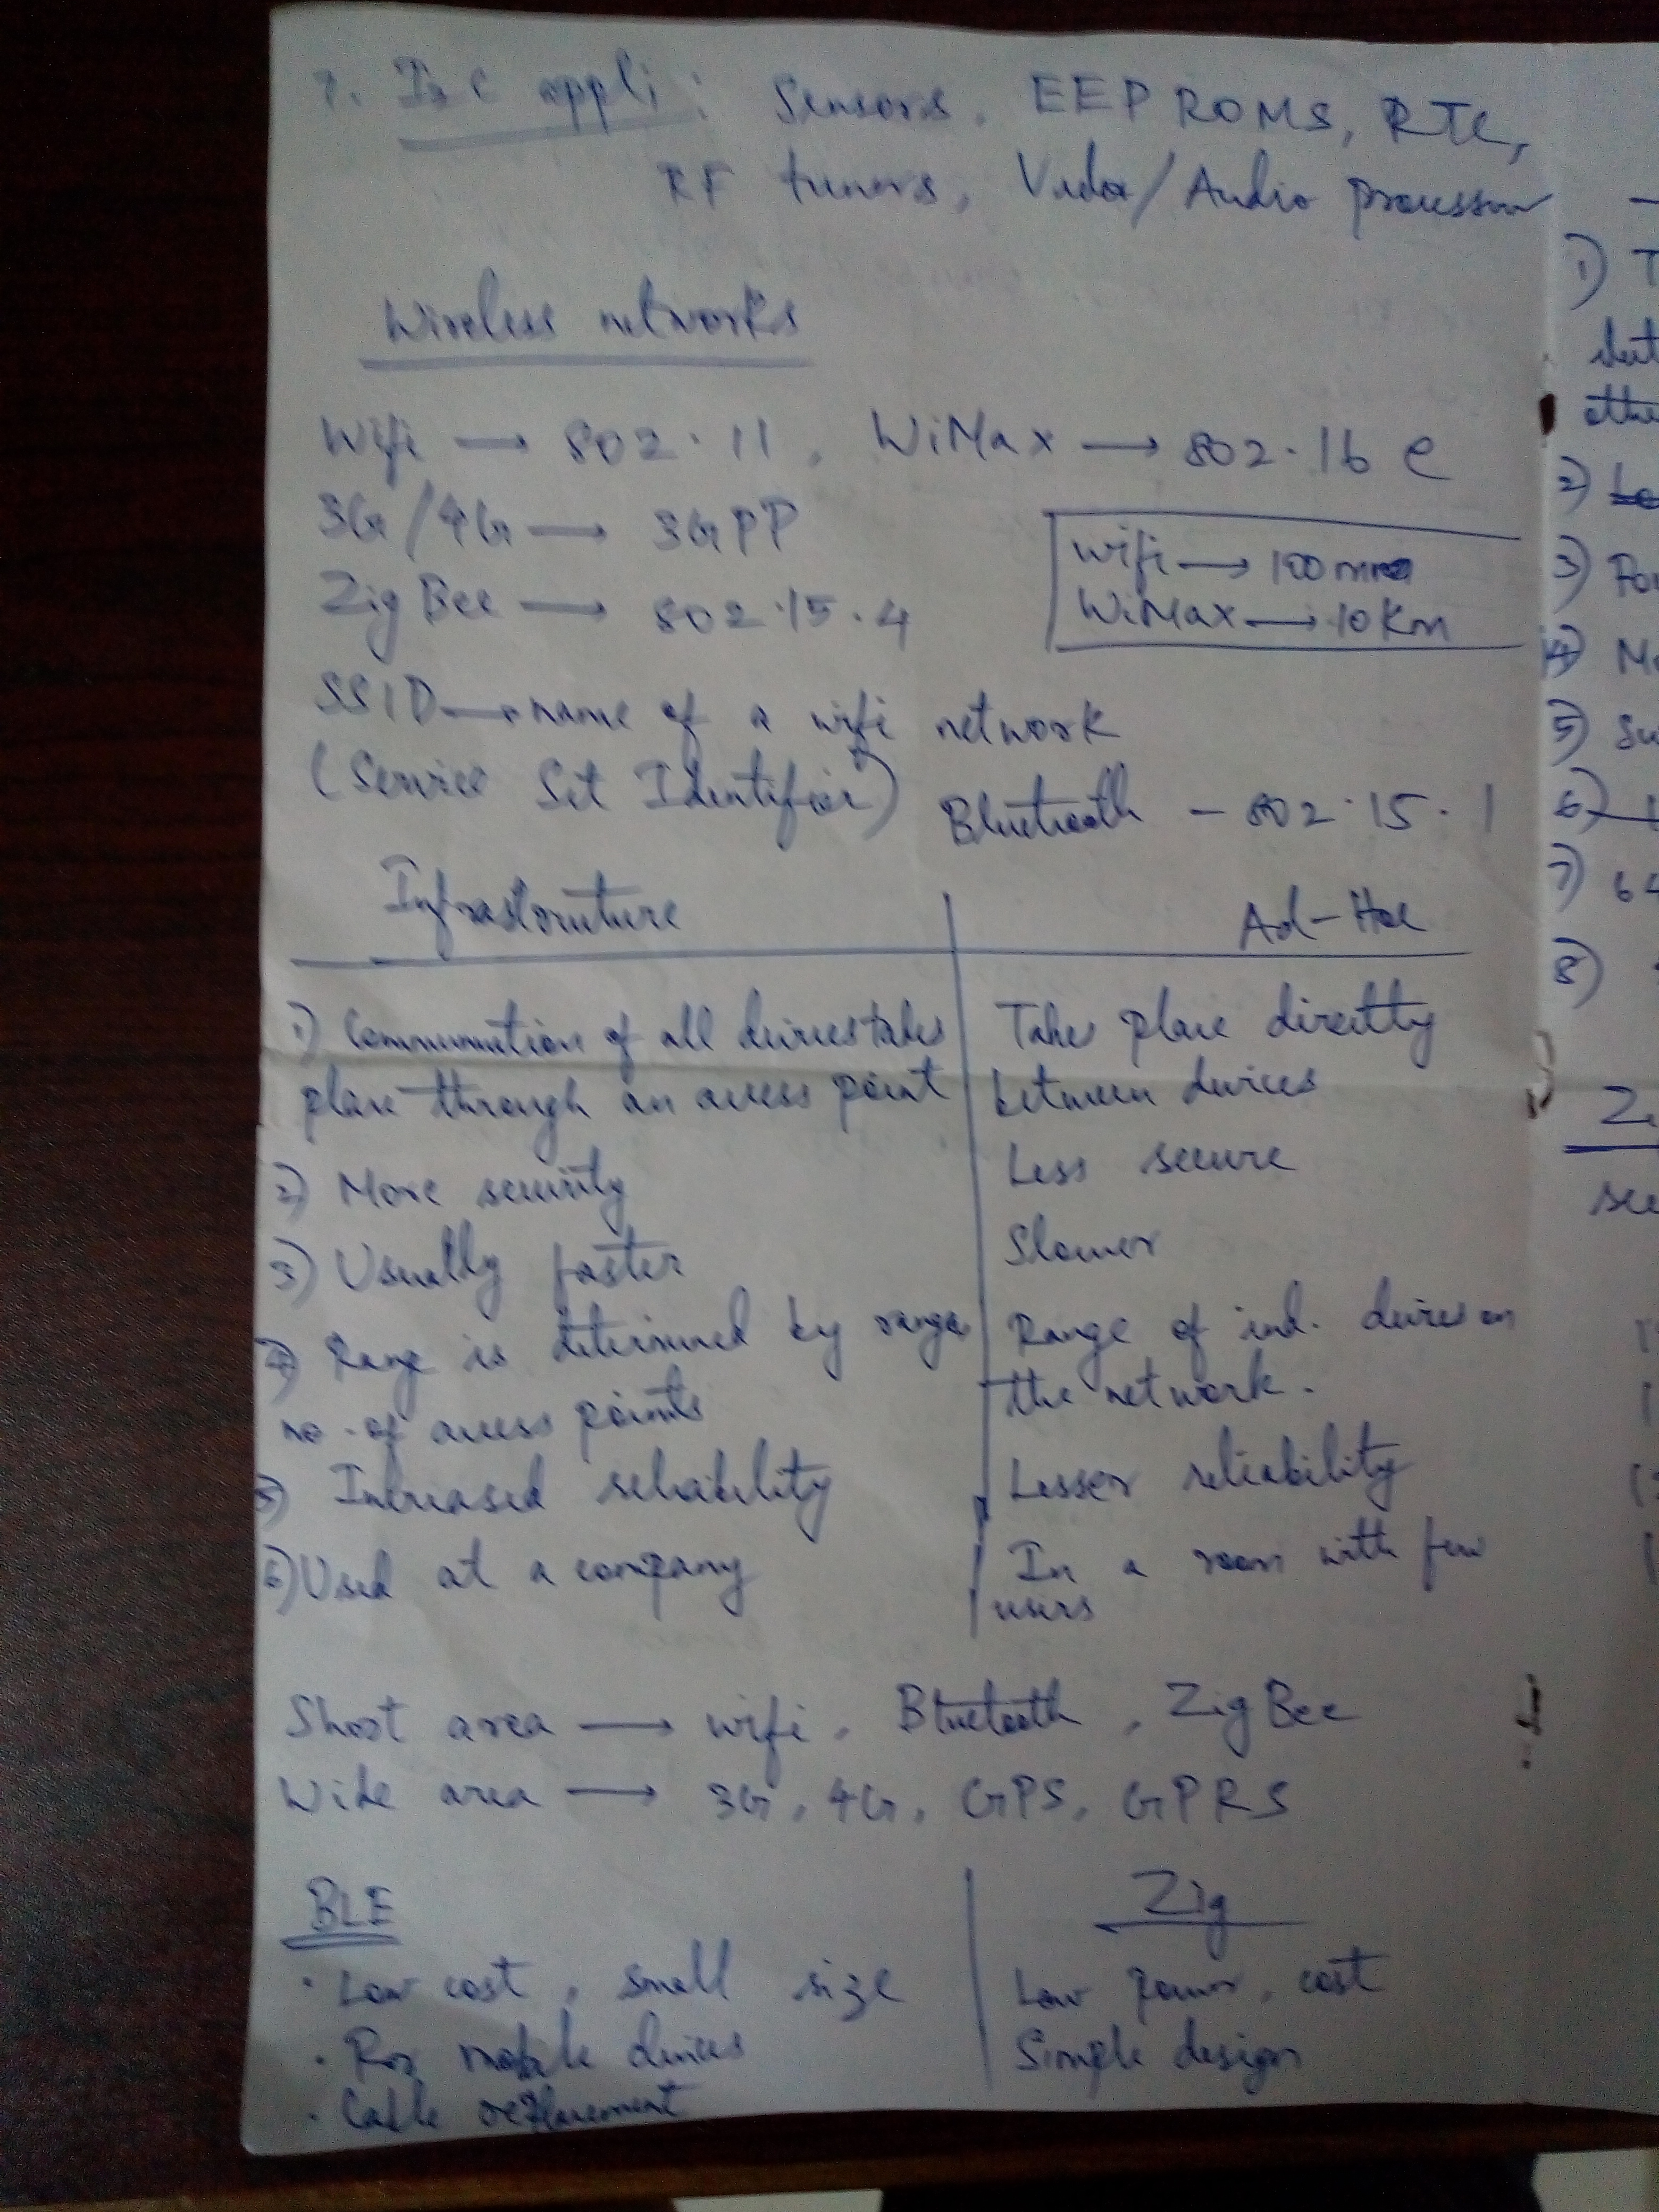 7. I2C appli: Sensors, EEPROMS, RTC,
RF tuners, Video/Audio processor
Wireless networks
Wifi → 802.11, WiMax → 802.16 e
3G/4G → 3GPP
Zig Bee → 802.15.4
wifi → 100m
WiMax → 10 Km
SSID → name of a wifi network
(Service Set Identifier)
Bluetooth - 802.15.1
Infrastructure
Ad-Hoc
1) Communication of all devices takes
place through an access point
Takes place directly
between devices
2) More security
Less secure
3) Usually faster
Slower
4) Range is determined by range,
no. of access points
Range of ind. devices on
the network.
5) Increased reliability
Lesser reliability
6) Used at a company
In a room with few
users
Short area → wifi, Bluetooth, Zig Bee
Wide area → 3G, 4G, GPS, GPRS
BLE
Zig
· Low cost, small size
Low power, cost
· For mobile devices
Simple design
· Cable replacement
1) T
2)
3) Pow
4) Mo
5) Su
6)
7) 64
8)